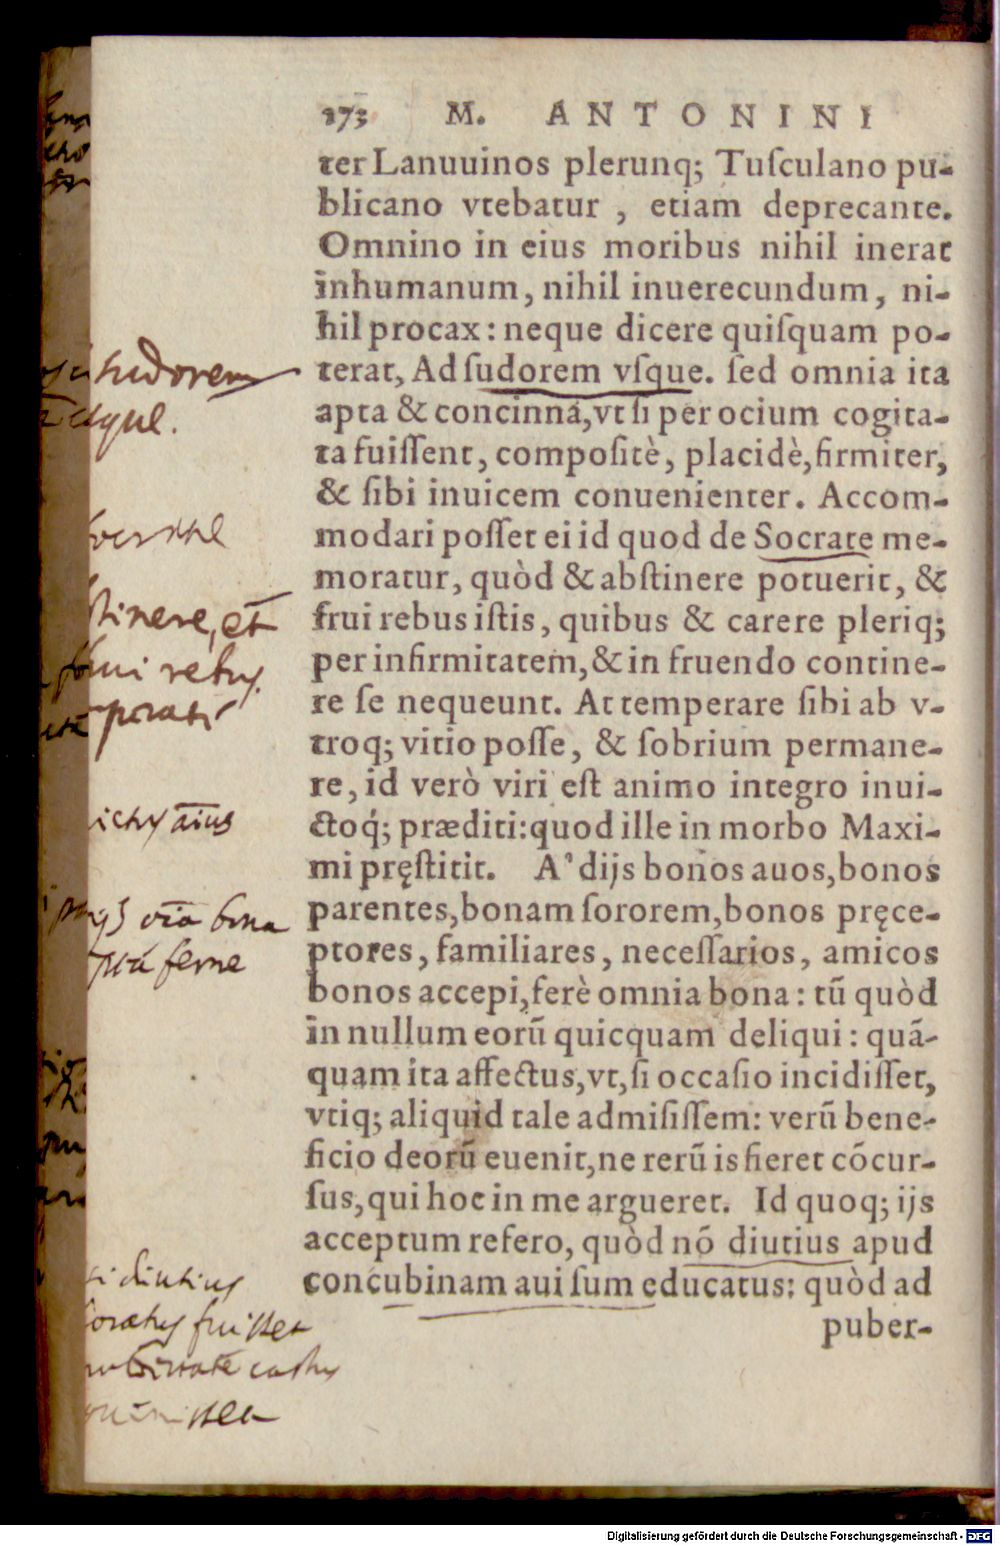 173 M. ANTONINI
ter Lanuuinos plerunq; Tuſculano pu-
blicano vtebatur, etiam deprecante.
Omnino in eius moribus nihil inerat
inhumanum, nihil inuerecundum, ni-
hil procax: neque dicere quiſquam po-
terat, Ad ſudorem vſque. ſed omnia ita
apta & concinna, vt ſi per ocium cogita-
ta fuiſſent, compoſitè, placidè, firmiter,
& ſibi inuicem conuenienter. Accom-
modari poſſet ei id quod de Socrate me-
moratur, quòd & abſtinere potuerit, &
frui rebus iſtis, quibus & carere pleriq;
per infirmitatem, & in fruendo contine-
re ſe nequeunt. At temperare ſibi ab v-
troq; vitio poſſe, & ſobrium permane-
re, id verò viri eſt animo integro inui-
ctoq́; præditi: quod ille in morbo Maxi-
mi pręſtitit. A' dijs bonos auos, bonos
parentes, bonam ſororem, bonos pręce-
ptores, familiares, neceſſarios, amicos
bonos accepi, ferè omnia bona: tū quòd
in nullum eorū quicquam deliqui: quā-
quam ita affectus, vt, ſi occaſio incidiſſet,
vtiq; aliquid tale admiſiſſem: verū bene-
ficio deorū euenit, ne rerū is fieret cōcur-
ſus, qui hoc in me argueret. Id quoq; ijs
acceptum refero, quòd nō diutius apud
concubinam aui ſum educatus: quòd ad
puber-
sudorem
usque.
stinere, et
frui rebus
bona
ferme
diutius
fuisset
castus
Digitalisierung gefördert durch die Deutsche Forschungsgemeinschaft - DFG